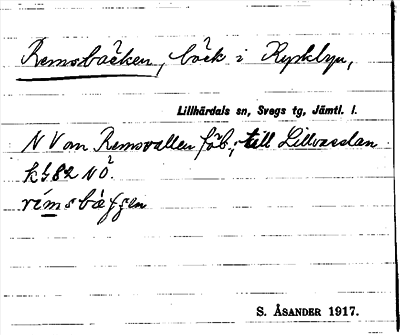 Remsbäcken, bäck i Kyrkbyn,
Lillhärdals sn, Svegs tg, Jämtl. l.
N V om Remsvallen fäb.; till Lillvasslan
k 582 NÖ.
S. ÅSANDER 1917.